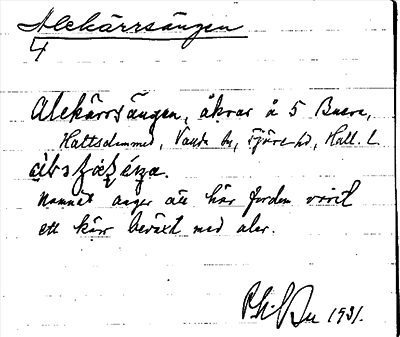 Alekärrsängen
4
Alekärrsängen, åkrar å 5 Buera,
Hattsdammed, Vanda by, Fjäre hd, Hall. l.
Namnet anger att här fordom varit
ett kärr beväxt med alar.
1931.